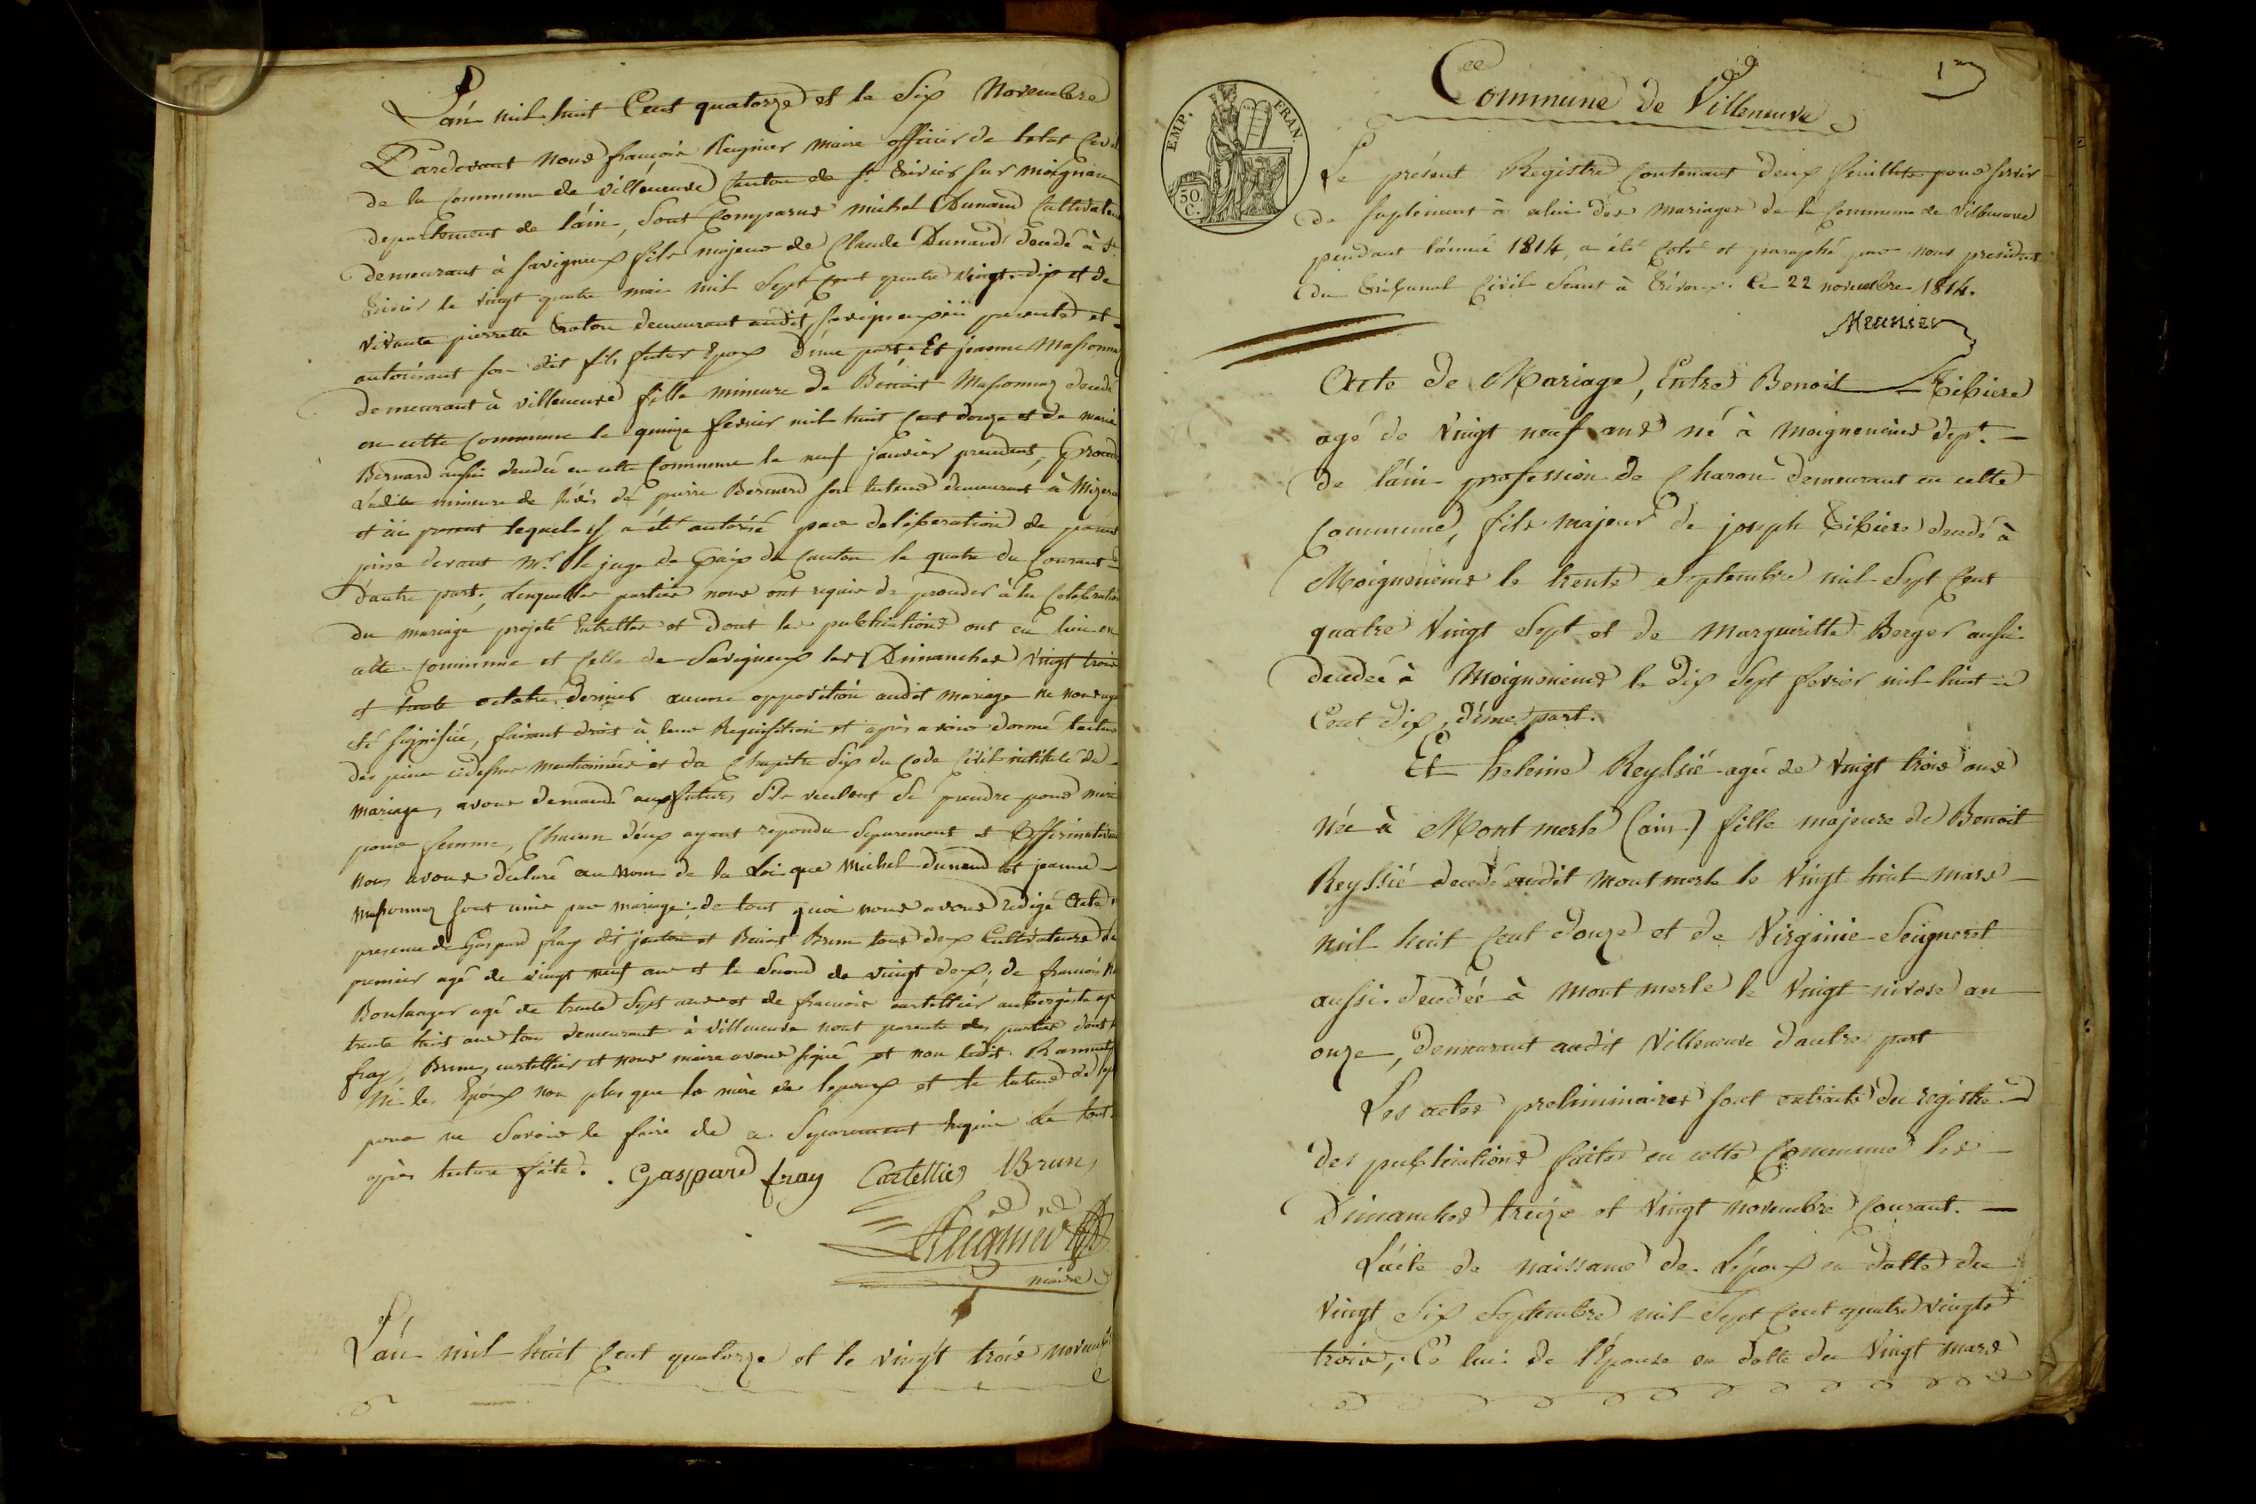 L'an mil huit Cent quatorze et le Six Novembre
Pardevant nous françois Reignier maire officier de letat Civil
de la Commune de villeneuve Canton de St Trivier sur moignans
departement de l'ain, Sont Comparus michel Dunand Cultivateur
demeurant à savigneux fils majeur de Claude Dunand décédé à St
Trivier le vingt quatre mai mil Sept Cent quatre vingt dix et de
vivante pierrette demeurant audit savigneux ici presente et
autorisant son dit fils futur Epoux d'une part. Et jeanne Massonnez
demeurant à villeneuve fille mineure de Benoit Massonnez décédé
en cette Commune le quinze fevrier mil huit Cent douze et de marie
Bernard aussi décédée en cette Commune le neuf janvier precedent,
Ladite mineure de l'avis de pierre Bernard son tuteur demeurant à
et ici present lequel a été autorisé par deliberation de parents
prise devant Mr. le juge de Paix du Canton le quatre du Courant
d'autre part, Lesquelles parties nous ont requis de proceder à la Celebration
du mariage projeté Entrelles et dont les publications ont eu lieu en
cette Commune et Celle de Savigneux les Dimanches vingt trois
et trente octobre dernier aucune opposition audit mariage ne nous ayant
été signifiée, faisant droit à leur Requisition et après avoir donné lecture
des pieces cidessus mentionnées et du Chapitre Six du Code Civil intitulé du
mariage, avons demandé aux futurs S'ils veulent Se prendre pour mari
pour femme, Chacun d'eux ayant repondu Separement et Affirmativement
nous avons declaré au nom de la Loi que Michel dunand et jeanne
Massonnez sont unis par mariage: de tout quoi nous avons redigé Acte
presence de Gaspard fray dit et Brun tous deux Cultivateurs le
premier agé de vingt neuf ans et le Second de vingt deux, de francois
Boulanger agé de trente Sept ans et de francois cartellier aubergiste agé
trente huit ans tous demeurant à Villeneuve nont parents des parties dont
fray, Brun, cartellier et nous maire avons signé, et non ledit
Ni les Epoux non plus que la mère de lepoux et le tuteur de
pour ne Savoir le faire de ce Separement requis le tout
après lecture faite. Gaspard fray Cartellier Brun
Reignier
maire
L'an mil huit Cent quatorze et le vingt trois novembre
Commune de Villeneuve
EMP. FRAN.
50 C.
Le présent Registre Contenant deux feuillets pour servir
de Suplement à celui des Mariages de la Commune de Villeneuve
pendant l'année 1814, a été Coté et paraphé par nous president
du Tribunal Civil Seant à Trévoux. Ce 22 novembre 1814.
Meunier
Acte de Mariage, Entre Benoit Tibiere
agé de Vingt neuf ans né à Moigneneins Dept.
de l'ain profession de Charon demeurant en cette
Commune, fils majeur de joseph Tibiere décédé à
Moigneneins le trente Septembre mil Sept Cent
quatre Vingt Sept et de Margueritte Berger aussi
decedée à Moigneneins le Dix Sept fevrier mil huit
Cent dix, d'une part.
Et heleine Reyssié agée de vingt trois ans
née à Mont merle (ain) fille majeure de Benoit
Reyssié decedé audit montmerle le Vingt huit mars
mil huit Cent douze et de Virginie Seigneret
aussi decedée à mont merle le Vingt nivose an
onze, demeurant audit Villeneuve d'autre part
Les actes preliminaires sont extraits du registre
Des publications faites en cette Commune les
Dimanches treize et Vingt Novembre Courant.
L'acte de naissance de L'époux en datte du
Vingt Six Septembre mil Sept Cent quatre vingts
trois, Celui de l'Epouse en datte du Vingt mars